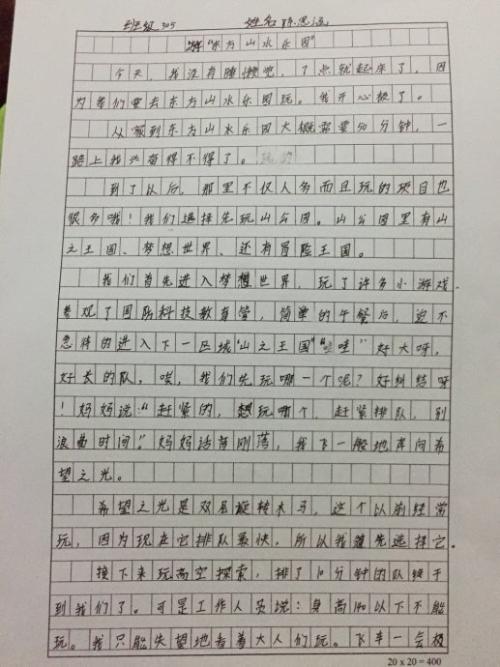 班级 305 姓名 陈思涵
游“东方山水乐园”
今天，我没有睡懒觉，7点就起床了，因
为爸们要去东方山水乐园玩。我开心极了。
从家到东方山水乐园大概需要50分钟，一
路上我兴奋得不得了。
到了以后，那里不仅人多而且玩的项目也
很多哦！我们选择先玩山公园。山公园里有山
之王国、梦想世界、还有冒险王国。
我们首先进入梦想世界，玩了许多小游戏，
参观了国防科技教育管，简单的午餐后，迫不
急待的进入下一区域“山之王国”“哇”好大呀，
好长的队，唉，我们先玩哪一个呢？好纠结呀
！妈妈说：“赶紧的，想玩哪个，赶紧排队，别
浪费时间。”妈妈话音刚落，我飞一般地奔向希
望之光。
希望之光是双层旋转木马，这个以前经常
玩，因为现在它排队最快，所以我首先选择它。
接下来玩高空探索，排了10分钟的队终于
到我们了。可是工作人员说：身高140以下不能
玩。我只能失望地看着大人们玩。飞车一会极
20×20=400